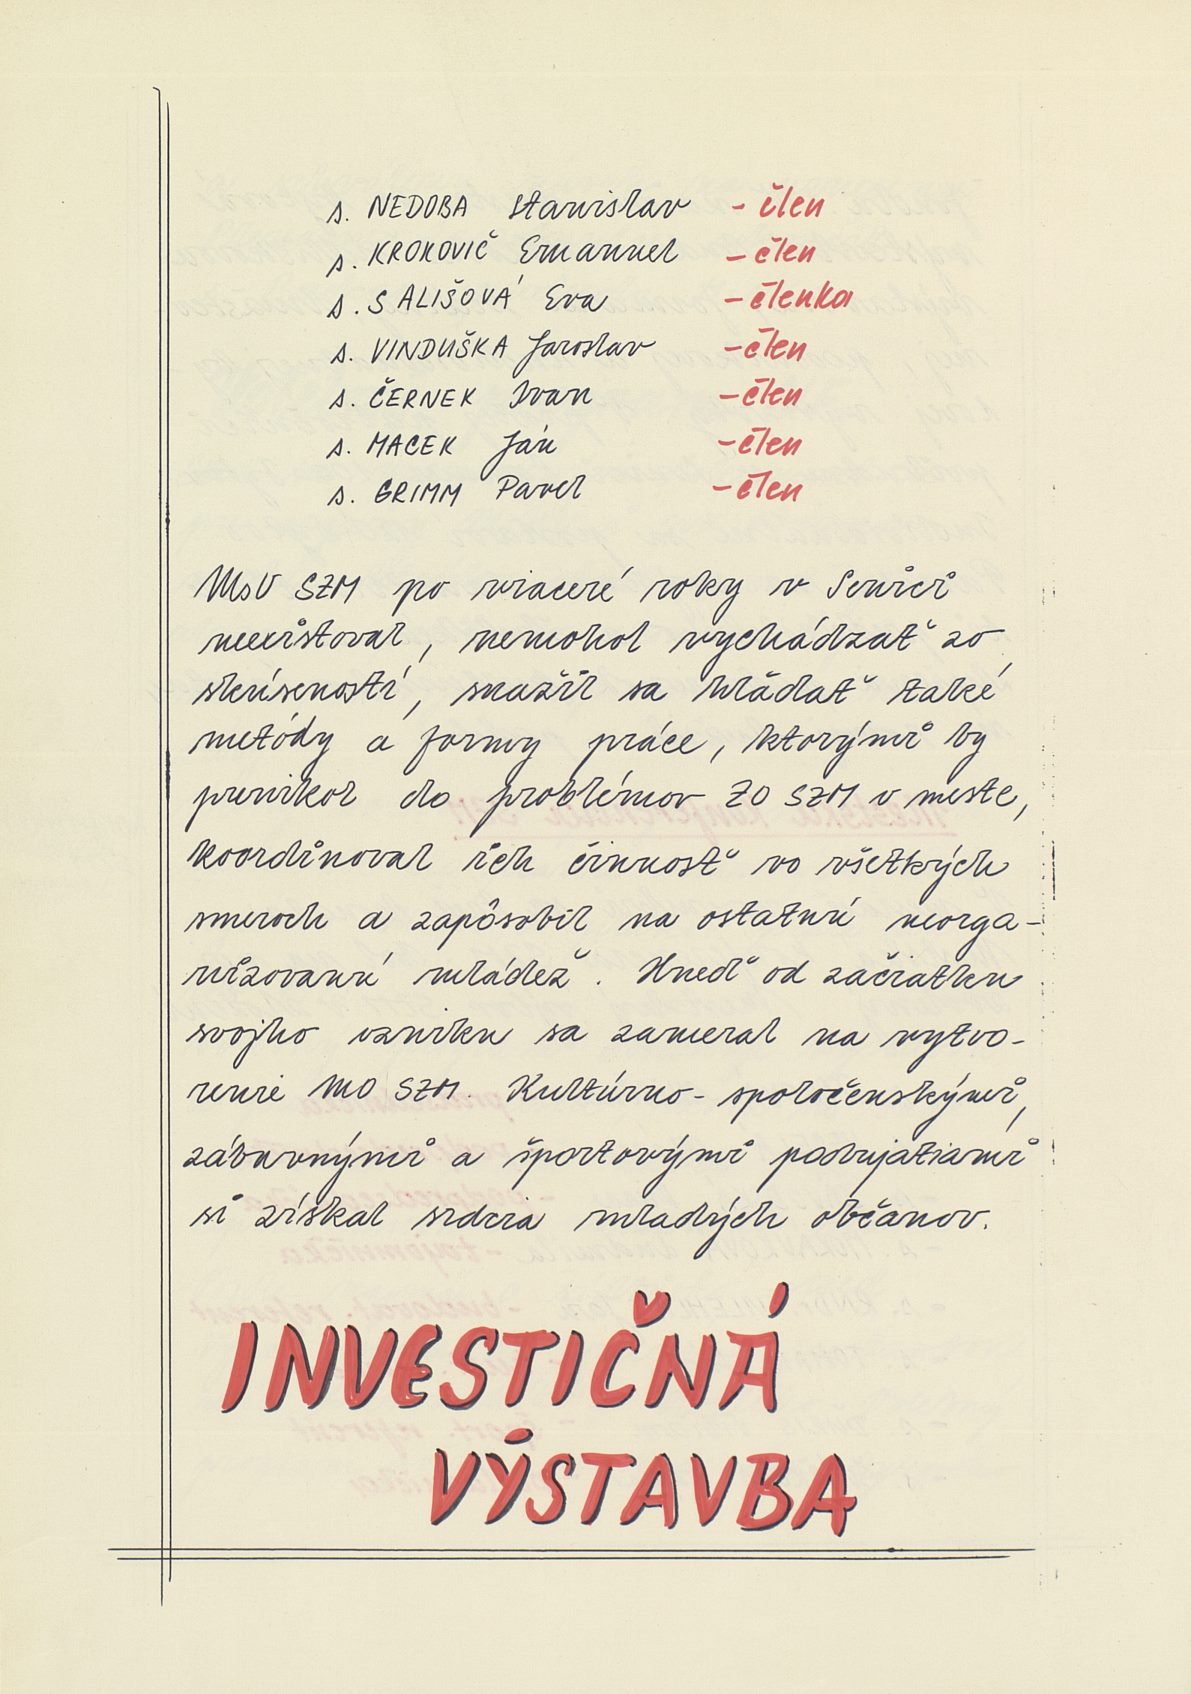 s. NEDOBA Stanislav - člen
s. KROKOVIČ Emanuel - člen
s. SALIŠOVÁ Eva - členka
s. VINDUŠKA Jaroslav - člen
s. ČERNEK Ivan - člen
s. MACEK Ján - člen
s. GRIMM Pavel - člen
MsV SZM po viaceré roky v Senici
neexistoval, nemohol vychádzať zo
skúseností, snažil sa hľadať také
metódy a formy práce, ktorými by
prenikol do problémov ZO SZM v meste,
koordinoval ich činnosť vo všetkých
smeroch a zapôsobil na ostatnú neorga-
nizovanú mládež. Hneď od začiatku
svojho vzniku sa zameral na vytvo-
renie MO SZM. Kultúrno-spoločenskými,
zábavnými a športovými podujatiami
si získal srdcia mladých občanov.
INVESTIČNÁ
VÝSTAVBA